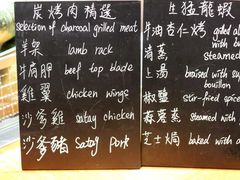 炭烤肉精選
selection of charcoal grilled meat
羊架 lamb rack
牛肩胛 beef top blade
雞翼 chicken wings
沙爹雞 satay chicken
沙爹豬 satay pork
生猛龍蝦
牛油杏仁烤 grilled
清蒸 steamed
上湯 braised with su
bouillon
椒鹽 stir-fried spice
蒜蓉蒸 steamed
芝士焗 baked with